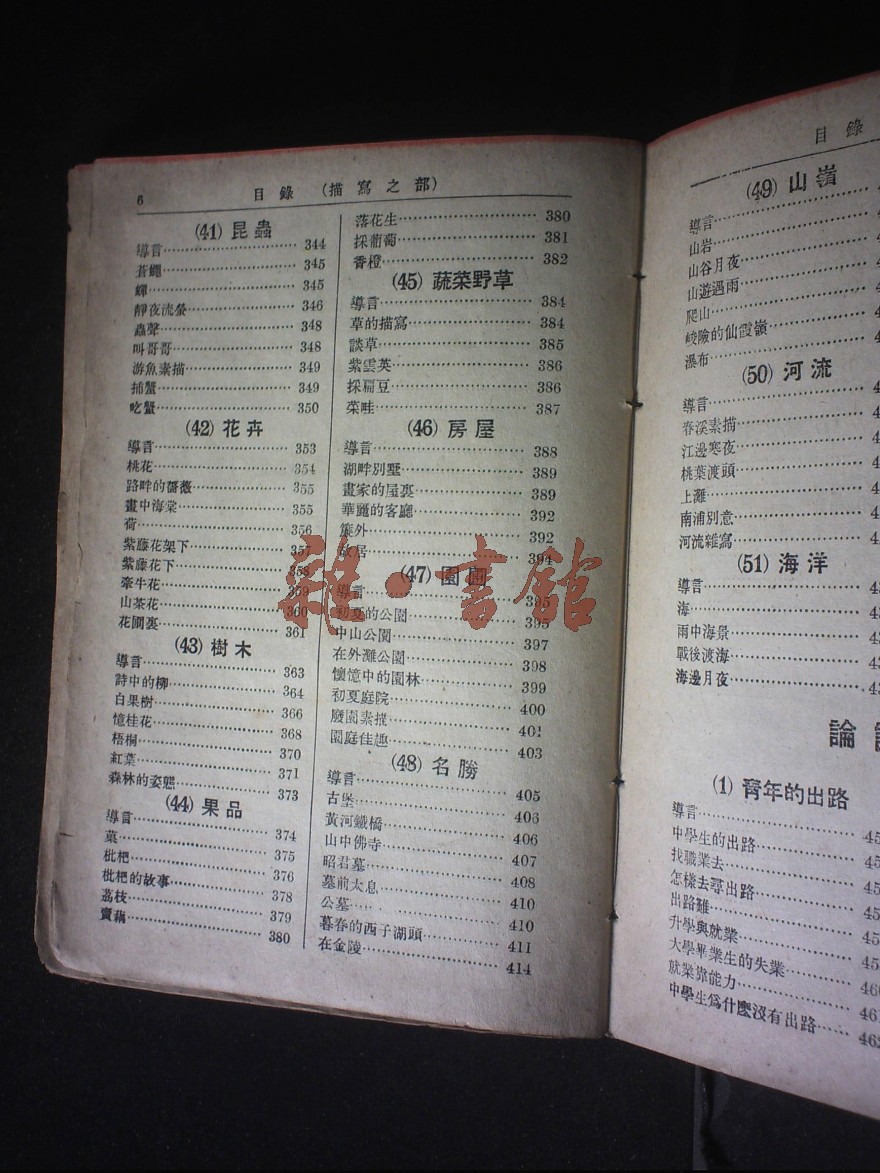 6 目錄 (描寫之部)
(41) 昆蟲
導言 344
蒼蠅 345
蟬 345
靜夜流螢 346
蟲聲 348
叫哥哥 348
游魚素描 349
捕蟹 349
吃蟹 350
(42) 花卉
導言 353
桃花 354
路畔的薔薇 355
畫中海棠 355
荷 356
紫藤花架下 357
紫藤花下 358
牽牛花 359
山茶花 360
花圃裏 361
(43) 樹木
導言 363
詩中的柳 364
白果樹 366
憶桂花 368
梧桐 370
紅葉 371
森林的姿態 373
(44) 果品
導言 374
菓 375
枇杷 376
枇杷的故事 378
荔枝 379
賣藕 380
落花生 380
採葡萄 381
香橙 382
(45) 蔬菜野草
導言 384
草的描寫 384
談草 385
紫雲英 386
採扁豆 386
菜畦 387
(46) 房屋
導言 388
湖畔別墅 389
畫家的屋裏 389
華麗的客廳 392
籬外 392
故居 394
(47) 園
導言 395
初夏的公園 395
中山公園 397
在外灘公園 398
懷憶中的園林 399
初夏庭院 400
廢園素描 401
園庭佳趣 403
(48) 名勝
導言 405
古堡 406
黃河鐵橋 406
山中佛寺 407
昭君墓 408
墓前太息 410
公墓 410
暮春的西子湖頭 411
在金陵 414
目錄
(49) 山嶺
導言
山岩
山谷月夜
山遊遇雨
爬山
峻險的仙霞嶺
瀑布
(50) 河流
導言
春溪素描
江邊寒夜
桃葉渡頭
上灘
南浦別意
河流雜寫
(51) 海洋
導言
海
雨中海景
戰後渡海
海邊月夜
論
(1) 青年的出路
導言
中學生的出路
找職業去
怎樣去尋出路
出路難
升學與就業
大學畢業生的失業
就業靠能力
中學生爲什麼沒有出路
書館